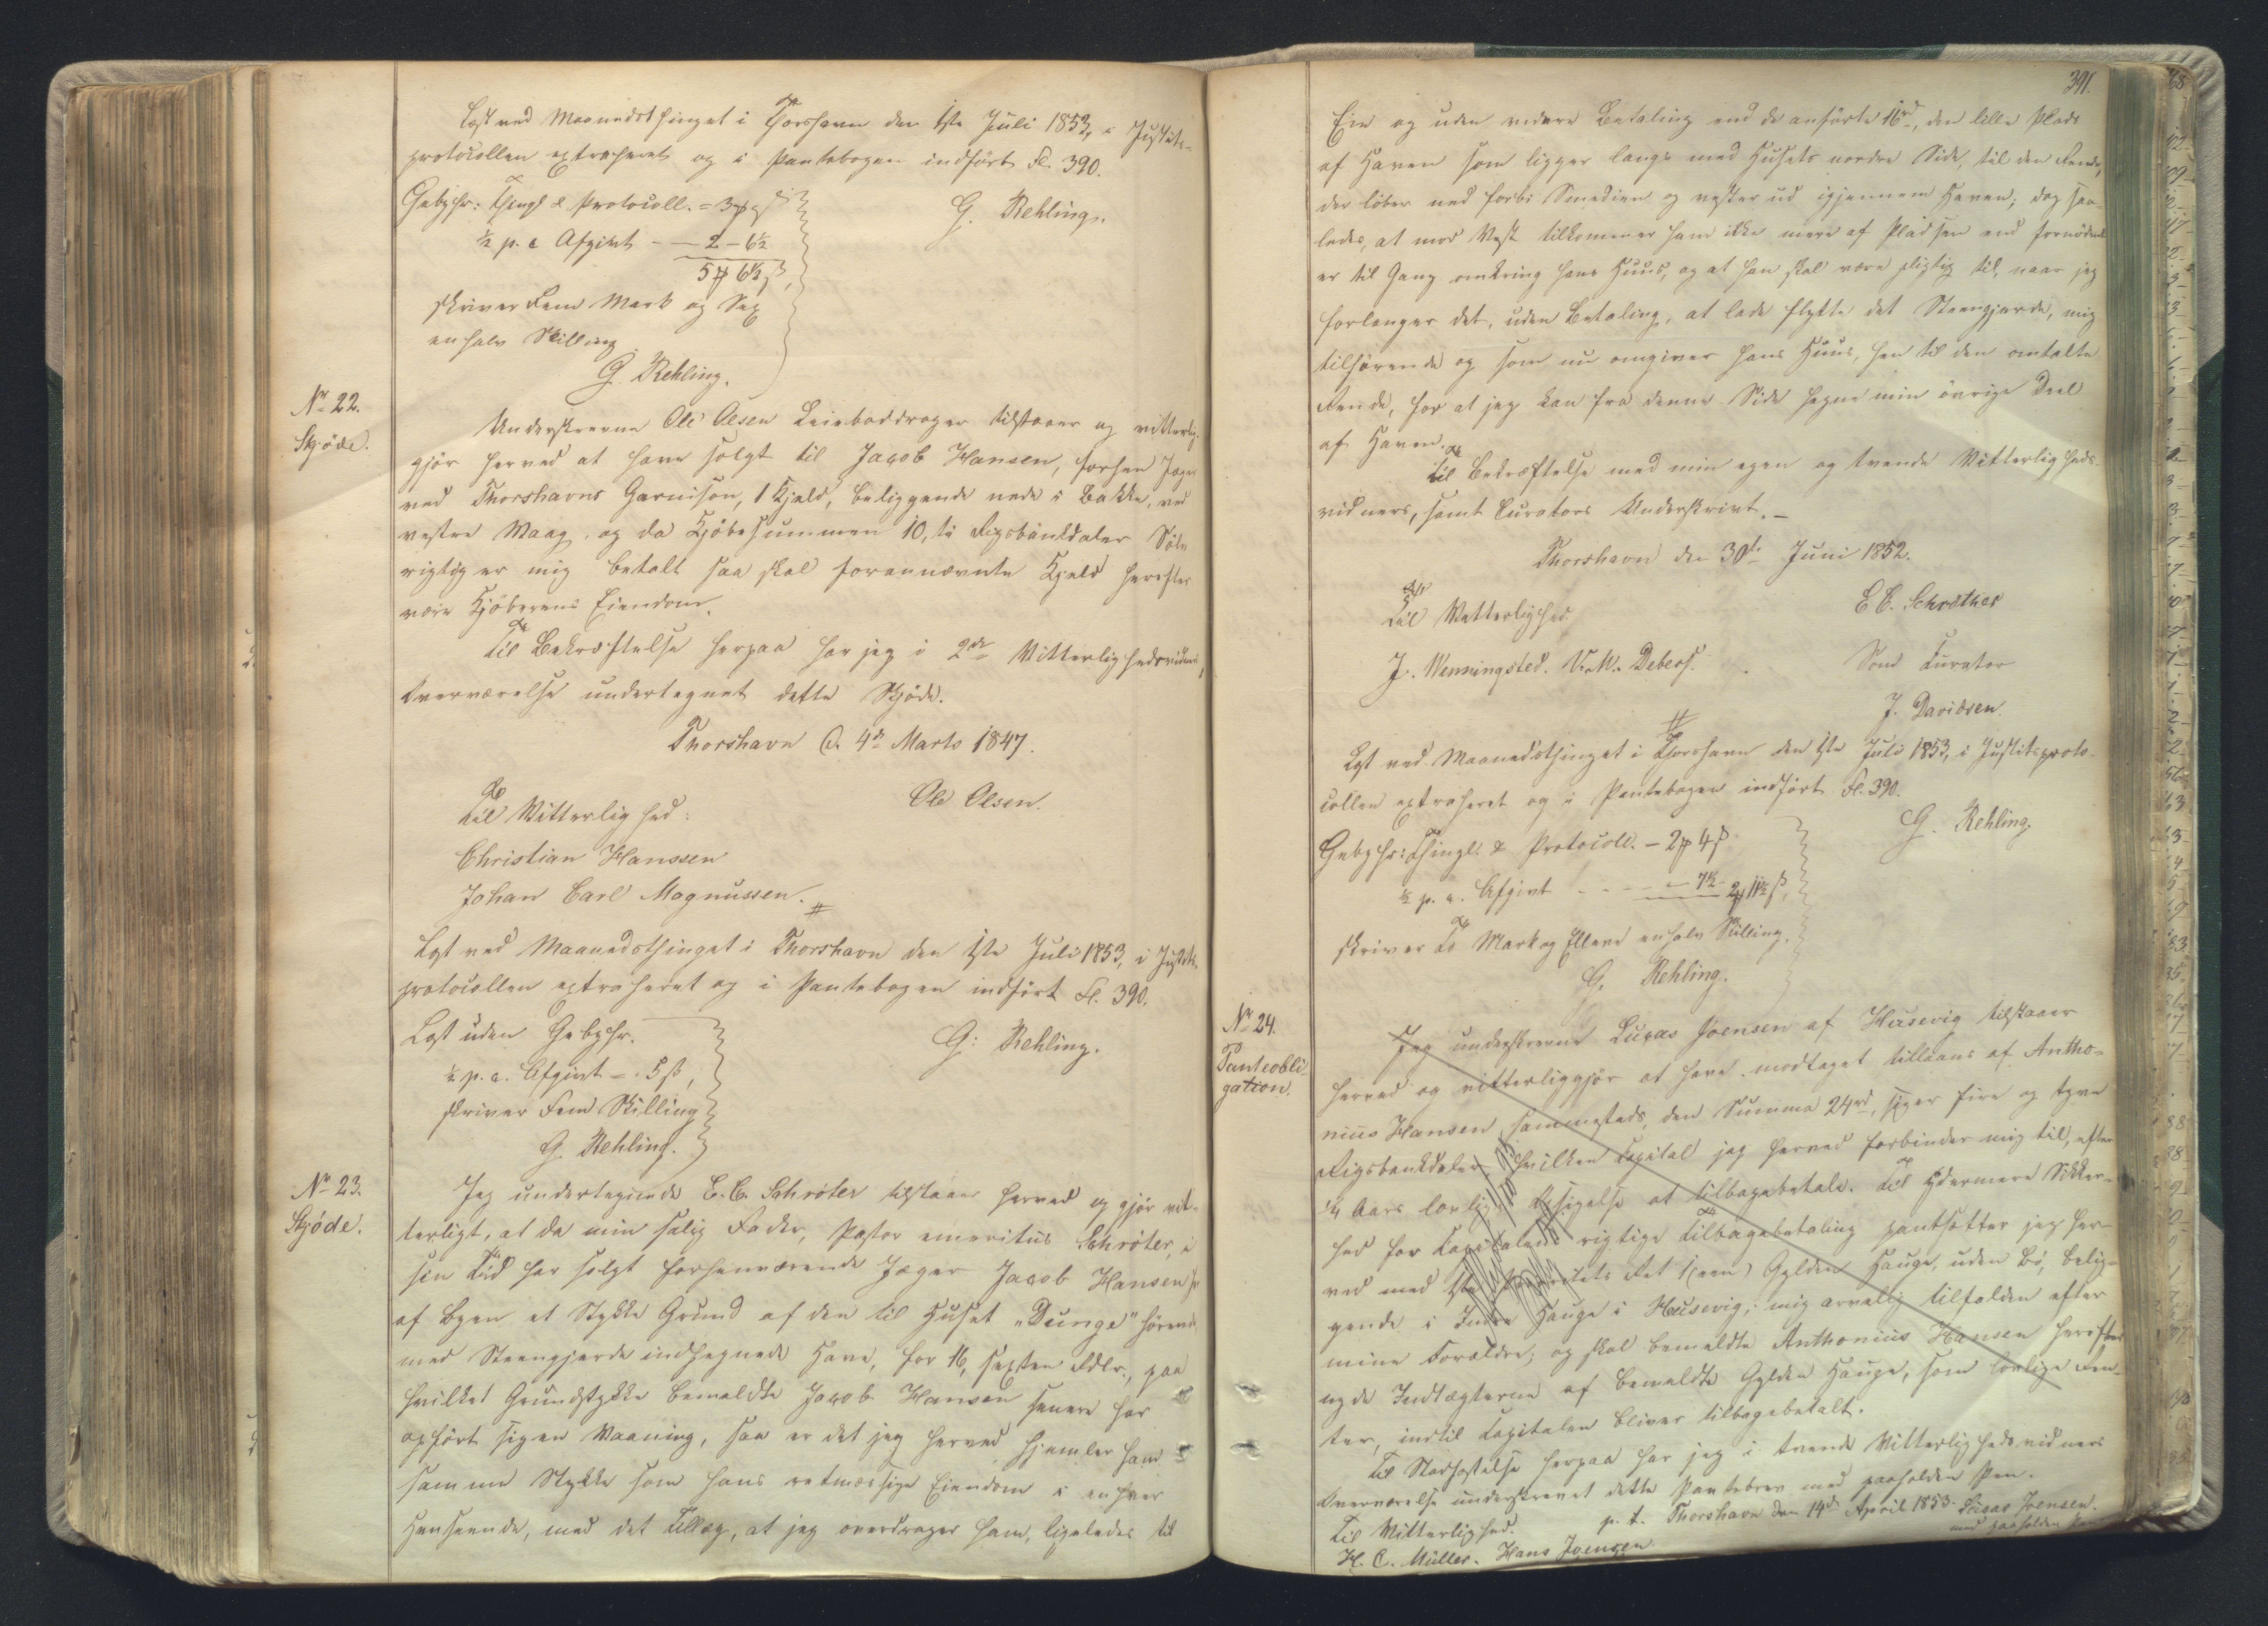 Læst ved Maanedsthinget i Thorshavn den 1ste Juli 1853, i Justits-
protocollen extraheret og i Pantebogen indført Fl. 390.
Gebyhr: Thingl. & Protocoll. = 3 ꝳ ß
G. Rehling.
½ p. c. Afgivt - — 2 - 6½
5 ꝳ 6½ ß,
skriver Fem Mark og Sex
en halv Skilling
G. Rehling.
Nr. 22.
Skjöde.
Underskrevne Ole Olsen Leieboddrager tilstaaer og vitterlig-
gjör herved at have solgt til Jacob Hansen, forhen Jæger
ved Thorshavns Garnison, 1 Kjeld, beliggende nede i Bakke, ved
vestre Vaag, og da Kjöbesummen 10, ti Rigsbankdaler Sölv
rigtig er mig betalt saa skal forannævnte Kjeld herefter
være Kjöberens Eiendom.
Til Bekræftelse herpaa har jeg i 2de Vitterlighedsvidners
Overværelse undertegnet dette Skjöde.
Thorshavn d. 4de Marts 1847.
Ole Olsen.
Til Vitterlighed:
Christian Hanssen
Johan Carl Magnussen.
Læst ved Maanedsthinget i Thorshavn den 1ste Juli 1853, i Justits-
protocollen extraheret og i Pantebogen indfört Fl. 390.
Læst uden Gebyhr.
G: Rehling.
½ p. c. Afgivt — 5 ß,
skriver Fem Skilling
G. Rehling.
Nr. 23.
Skjöde.
Jeg undertegnede E. C. Schröter tilstaaer herved og gjör vit-
terligt, at da min salig Fader, Pastor emeritus Schröter, i
sin Tid har solgt forhenværende Jæger Jacob Hansen
af Byen et Stykke Grund af den til Huset "Dunge" hörende
med Steengjerde indhegnede Have, for 16, sexten Rdlr., paa
hvilket Grundstykke bemeldte Jacob Hansen senere har
opfört sig en Vaaning, saa er det jeg herved hjemler ham
samme Stykke som hans retmæssige Eiendom i enhver
Henseende, med det Tillæg, at jeg overdrager ham, ligeledes til
391.
Eie og uden videre Betaling end de anförte 16rd, den lille Plads
af Haven som ligger langs med Husets nordre Side, til den Rende,
der löber ned forbi Smedien og vester ud igjennem Haven; dog saa-
ledes, at mod Vest tilkommer ham ikke mere af Pladsen end fornödent
er til Gang omkring hans Huus, og at han skal være pligtig til, naar jeg
forlanger det, uden Betaling, at lade flytte det Steengjerde, mig
tilhörende og som nu omgiver hans Huus, hen til den omtalte
Rende, for at jeg kan fra denne Side hegne min övrige Deel
af Haven.
Til Bekræftelse med min egen og tvende Vitterligheds-
vidners, samt Curators Underskrivt. —
Thorshavn den 30te Juni 1852.
E C. Schröther
Til Vitterlighed.
J. Wenningsted. V. M. Debess.
Som Curator
J. Davidsen.
Læst ved Maanedsthinget i Thorshavn den 1ste Juli 1853, i Justitsproto-
collen extraheret og i Pantebogen indfört Fl. 390.
G. Rehling.
Gebyhr: Thingl. & Protocoll. — 2 ꝳ 4 ß
½ p. c. Afgivt - - - - — 7½ - 2 ꝳ 11½ ß,
skriver To Mark og Elleve en halv Skilling.
G. Rehling.
Nr. 24.
Panteobli-
gation.
Jeg underskrevne Lucas Joensen af Husevig tilstaaer
herved og vitterliggjör at have modtaget tillaans af Antho-
nius Hansen, sammesteds, den Summa 24rd, siger fire og tyve
Rigsbankdaler hvilken Capital jeg herved forbinder mig til, efter
¼ Aars lovlig Opsigelse at tilbagebetale. Til ydermere Sikker-
hed for Capitalens rigtige Tilbagebetaling pantsætter jeg her-
ved med 1ste Prioritets Ret 1 (een) Gylden Hauge, uden Bö, belig-
gende i Indre Hauge i Husevig; mig arvelig tilfalden efter
mine Forældre; og skal bemeldte Anthonius Hansen herefter
nyde Indtægterne af bemeldte Gylden Hauge, som lovlige Ren-
ter, indtil Capitalen bliver tilbagebetalt.
Til Stadfæstelse herpaa har jeg i tvende Vitterlighedsvidners
Overværelse underskrevet dette Pantebrev med paaholden Pen.
p. t. Thorshavn den 14de April 1853. Lucas Joensen.
Til Vitterlighed.
med paaholden Pen
H. C. Müller. Hans Joensen